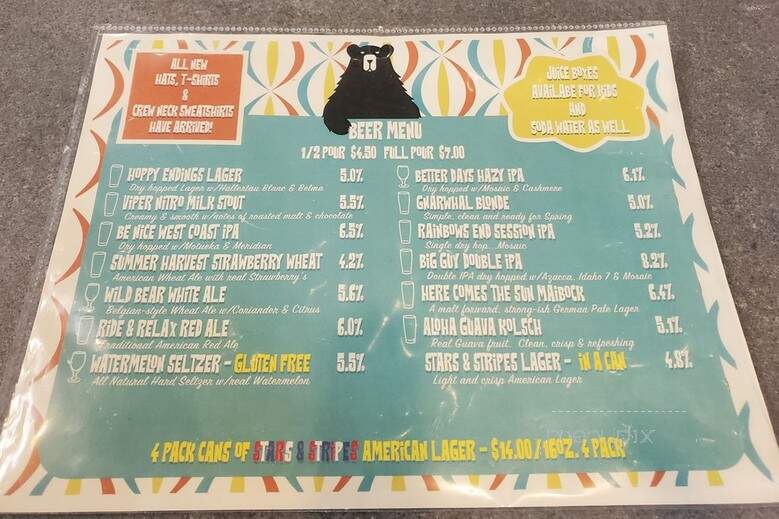 ALL NEW
HATS, T-SHIRTS
&
CREW NECK SWEATSHIRTS
HAVE ARRIVED!
JUICE BOXES
AVAILABE FOR KIDS
AND
SODA WATER AS WELL
BEER MENU
1/2 POUR $4.50 FULL POUR $7.00
HOPPY ENDINGS LAGER 5.0%
Dry hopped Lager w/Hallertau Blanc & Belma
VIPER NITRO MILK STOUT 5.5%
Creamy & smooth w/notes of roasted malt & chocolate
BE NICE WEST COAST IPA 6.5%
Dry hopped w/Motueka & Meridian
SUMMER HARVEST STRAWBERRY WHEAT 4.2%
American Wheat Ale with real Strawberry's
WILD BEAR WHITE ALE 5.6%
Belgian-style Wheat Ale w/Coriander & Citrus
RIDE & RELAX RED ALE 6.0%
Traditional American Red Ale
WATERMELON SELTZER - GLUTEN FREE 5.5%
All Natural Hard Seltzer w/real Watermelon
BETTER DAYS HAZY IPA 6.1%
Dry hopped w/Mosaic & Cashmere
GNARWHAL BLONDE 5.0%
Simple, clean and ready for Spring
RAINBOWS END SESSION IPA 5.2%
Single dry hop...Mosaic
BIG GUY DOUBLE IPA 8.2%
Double IPA dry hopped w/Azacca, Idaho 7 & Mosaic
HERE COMES THE SUN MAIBOCK 6.4%
A malt forward, strong-ish German Pale Lager
ALOHA GUAVA KOLSCH 5.1%
Real Guava fruit. Clean, crisp & refreshing
STARS & STRIPES LAGER - IN A CAN 4.8%
Light and crisp American Lager
4 PACK CANS OF STARS & STRIPES AMERICAN LAGER - $14.00/16OZ. 4 PACK